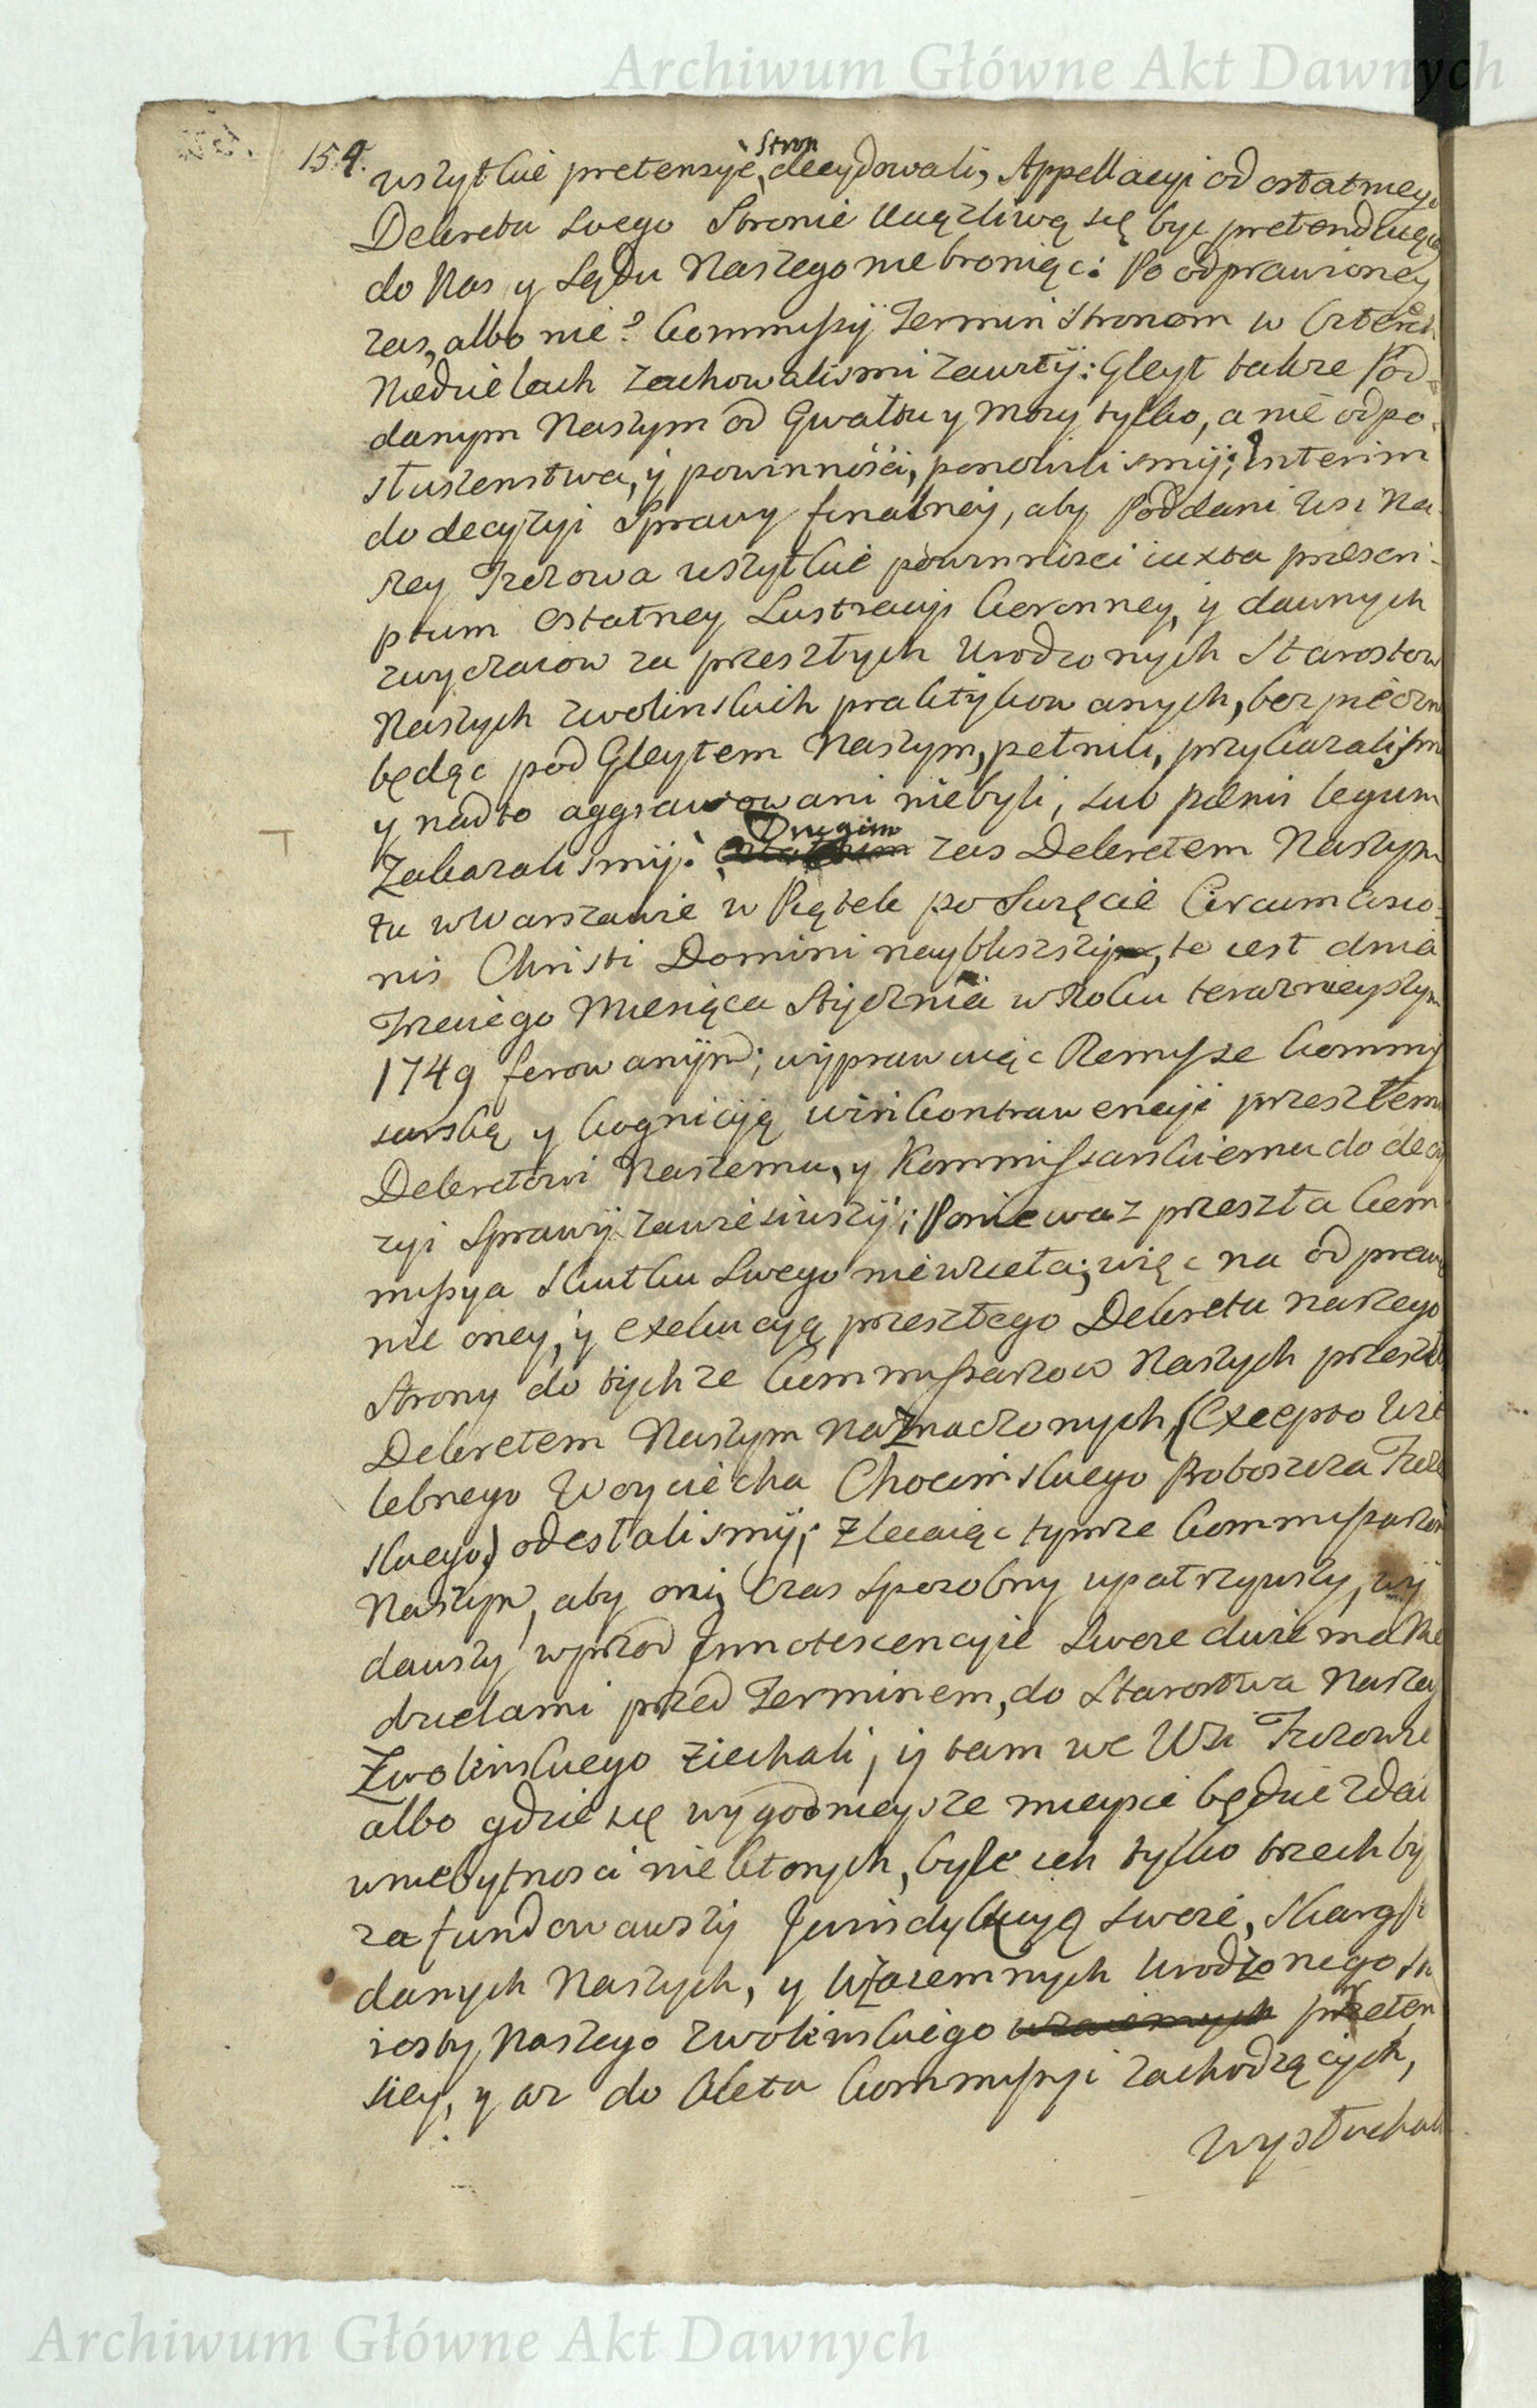 Archiwum Główne Akt Dawnych
154.
Stron
wszytkie pretensye, decydowali, Appellacyi od ostatniego
Dekretu swego Stronie Uciążliwą się być pretenduiącey
do Nas y Sądu Naszego nie broniąc: Po odprawioney
zas, albo nie? Commissyi Termin Stronom w Czterech
Niedzielach zachowalismi zawity: Gleyt takze Pod-
danym Naszym od Gwałtu y Mocy tylko, a nie od po-
słuszenstwa, y powinnosci, ponowilismy; Interim
do decyzyi Sprawy finalney, aby Poddani Wsi Na-
szey Trzezowa wszytkie powinnosci iuxta prescri-
ptum ostatney Lustracyi Coronney, y dawnych
zwyczaiow za przeszłych Urodzonych Starostow
Naszych Zwolinskich praktykowanych, bezpieczni
będąc pod Gleytem Naszym, pełnili, przykazalismy
y nadto aggrawowani niebyli, sub poenis legum
Drugim
Zakazalismy: zas Dekretem Naszym
tu w Warszawie w Piątek po Swięcie Circumcisio-
nis Christi Domini naybliszszym, to iest dnia
Trzeciego Miesiąca Stycznia w Roku teraznieyszym
1749 ferowanym; wyprawuiąc Remysse Commis
sarską y Cognicyą win Contrawencyi przeszłemu
Dekretowi Naszemu, y Kommissarskiemu do decy
zyi Sprawy zawiesiwszy; Poniewaz przeszła Com
missya skutku Swego nie wzieła; więc na odprawie
nie oney, y exekucyą przeszłego Dekretu naszego
Strony do tychze Commissarzow Naszych przeszłym
Dekretem Naszym naznaczonych, (Excepto Wie
lebnego Woyciecha Chocimskiego Proboszcza Trzezo
skiego) odesłalismy; Zlecaiąc tymze Commissarzom
Naszym, aby oni, czas sposobny upatrzywszy, wy
dawszy wprzod Innotescencyie Swoie dwiema Nie
dzielami przed Terminem, do Starostwa Naszego
Zwolinskiego ziechali, y tam we Wsi Trzezowie
albo gdzie się wygodnieysze mieysce będzie zdac
w niebytnosci niektorych, byle ich tylko trzech by
zafundowawszy Jurisdykcyą Swoie, Skarg
danych Naszych, y Wzaiemnych Urodzonego Sta
rosty Naszego Zwolinskiego wzaiemnych preten
siey, y az do Aktu Commissyi zachodzących,
wysłuchali
Archiwum Główne Akt Dawnych